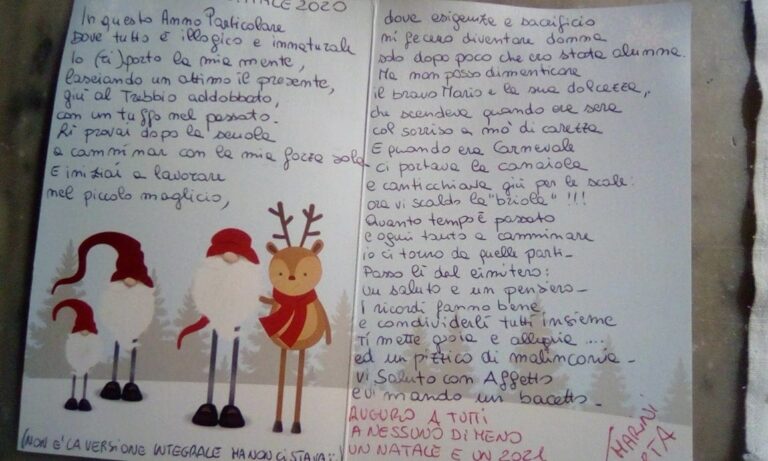 NATALE 2020
In questo Anno Particolare
Dove tutto è illogico e innaturale
Io (ri)porto la mia mente,
lasciando un attimo il presente,
giù al Trebbio addobbato,
con un tuffo nel passato.
Ri provai dopo la scuola
a camminar con la mia forza sola
E iniziai a lavorare
nel piccolo maglicio,
(NON E' LA VERSIONE INTEGRALE MA NON CI STAVA :)
dove esigenze e sacrificio
mi fecero diventare donna
solo dopo poco che ero stata alunna.
Ma non posso dimenticare
il bravo Mario e la sua dolcezza,
che scendeva quando era sera
col sorriso a mo' di carezza
E quando era Carnevale
ci portava la canaiola
e canticchiava giù per le scale:
ora vi scaldo la "briola" !!!
Quanto tempo È passato
e ogni tanto a camminare
io ci torno da quelle parti-
Passo lì dal cimitero:
un saluto e un pensiero-
I ricordi fanno bene,
e condividerli tutti insieme
Ti mette gioia e allegria ...
ed un pizzico di malinconia-
Vi Saluto con Affetto
e vi mando un bacetto-
AUGURO A TUTTI
A NESSUNO DI MENO
UN NATALE E UN 2021
MARINI